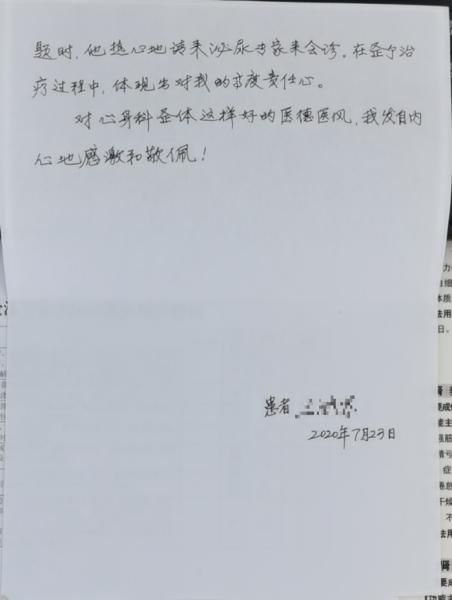 题时,他热心地请来泌尿专家来会诊。在整个治
疗过程中,体现出对我的高度责任心。
对心身科整体这样好的医德医风,我发自内
心地感激和敬佩!
患者
2020年7月23日